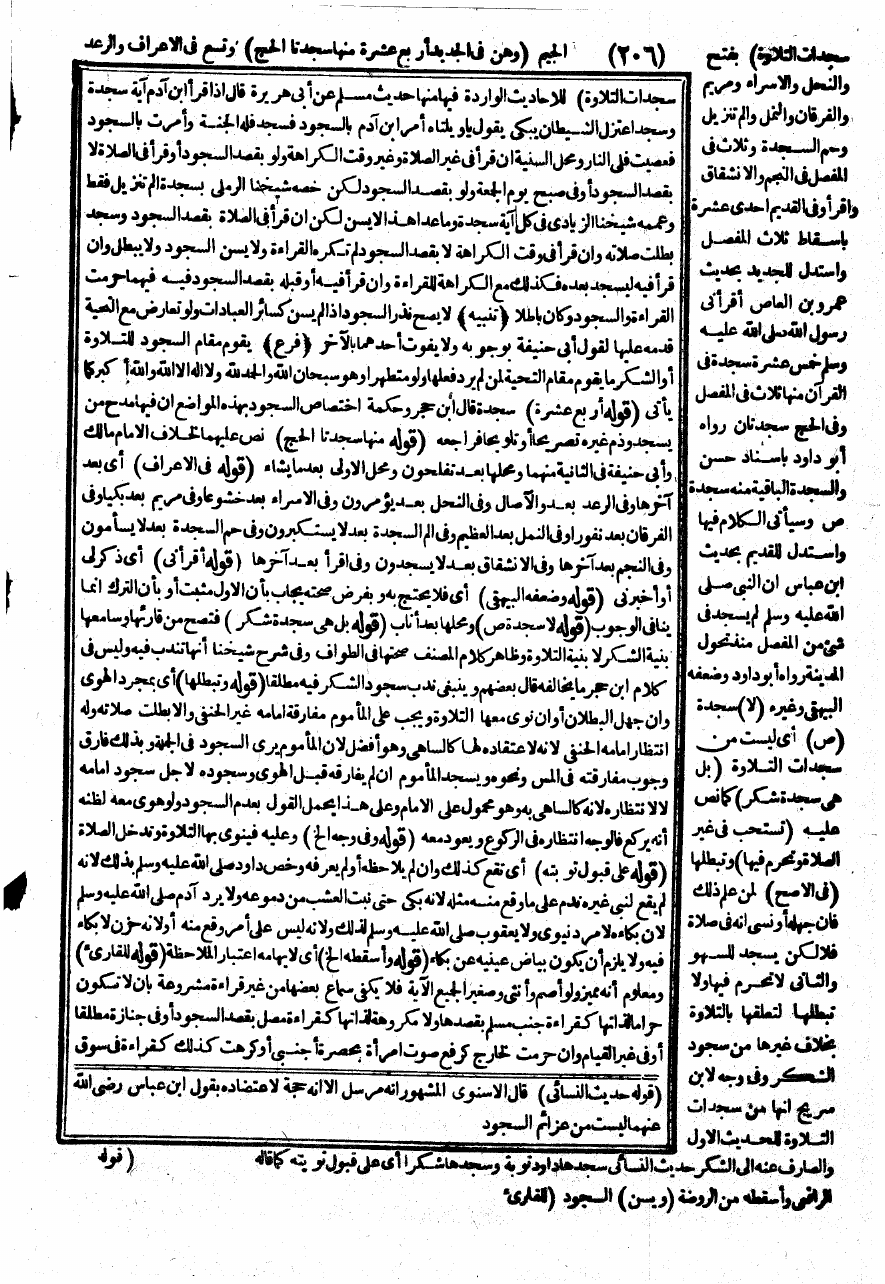 سجدات التلاوة) بفتح (٢٠٦) الجيم (وهن فى الجديد أربع عشرة منها سجدتا الحج) وتسع فى الاعراف والرعد
والنحل والاسراء ومريم
والفرقان والنمل والم تنزيل
وحم السجدة وثلاث فى
المفصل فى النجم والانشقاق
واقرأ وفى القديم احدى عشرة
باسقاط ثلاث المفصل
واستدل للجديد بحديث
عمرو بن العاص أقرأنى
رسول الله صلى الله عليه
وسلم خمس عشرة سجدة فى
القرآن منها ثلاث فى المفصل
وفى الحج سجدتان رواه
أبو داود باسناد حسن
والسجدة الباقية منه سجدة
ص وسيأتى الكلام فيها
واستدل للقديم بحديث
ابن عباس ان النبى صلى
الله عليه وسلم لم يسجد فى
شئ من المفصل منذ تحول
المدينة رواه أبو داود وضعفه
البيهقى وغيره (لا) سجدة
(ص) أى ليست من
سجدات التلاوة (بل
هى سجدة شكر) كما نص
عليه (تستحب فى غير
الصلاة وتحرم فيها) وتبطلها
(فى الاصح) لمن علم ذلك
فان جهله أو نسى انه فى صلاة
فلا لكن يسجد للسهو
والثانى لا تحرم فيها ولا
تبطلها لتعلقها بالتلاوة
بخلاف غيرها من سجود
الشكر وفى وجه لابن
سريج انها من سجدات
التلاوة للحديث الاول
والصارف عنه الى الشكر حديث النسائى سجدها داود توبة وسجدها شكرا أى على قبول توبته كما قاله
الرافعى وأسقطه من الروضة (ويسن) السجود (للقارئ
سجدات التلاوة) للاحاديث الواردة فيها منها حديث مسلم عن أبى هريرة قال اذا قرأ ابن آدم آية سجدة
وسجد اعتزل الشيطان يبكى يقول ياويلتاه أمر ابن آدم بالسجود فسجد فله الجنة وأمرت بالسجود
فعصيت فلى النار ومحل السنية ان قرأ فى غير الصلاة وغير وقت الكراهة ولو بقصد السجود أو قرأ فى الصلاة لا
بقصد السجود أو فى صبح يوم الجمعة ولو بقصد السجود لكن خصه شيخنا الرملى بسجدة الم تنزيل فقط
وعممه شيخنا الزيادى فى كل آية سجدة وما عدا هذا لا يسن لكن ان قرأ فى الصلاة بقصد السجود وسجد
بطلت صلاته وان قرأ فى وقت الكراهة لا بقصد السجود لم تكره القراءة ولا يسن السجود ولا يبطل وان
قرأ فيه ليسجد بعده فكذلك مع الكراهة للقراءة وان قرأ فيه أو قبله بقصد السجود فيه فيهما حرمت
القراءة والسجود وكان باطلا (تنبيه) لا يصح نذر السجود اذا لم يسن كسائر العبادات ولو تعارض مع التحية
قدمه عليها لقول أبى حنيفة بوجوبه ولا يفوت أحدهما بالآخر (فرع) يقوم مقام السجود للتلاوة
أو الشكر ما يقوم مقام التحية لمن لم يرد فعلها ولو متطهرا وهو سبحان الله والحمد لله ولا اله الا الله والله أكبر كما
يأتى (قوله أربع عشرة) سجدة قال ابن حجر وحكمة اختصاص السجود بهذه المواضع ان فيها مدح من
يسجد وذم غيره تصريحا أو تلويحا فراجعه (قوله منها سجدتا الحج) نص عليهما لخلاف الامام مالك
وأبى حنيفة فى الثانية منهما ومحلها بعد تفلحون ومحل الاولى بعد ما يشاء (قوله فى الاعراف) أى بعد
آخرها وفى الرعد بعد والآصال وفى النحل بعد يؤمرون وفى الاسراء بعد خشوعا وفى مريم بعد بكيا وفى
الفرقان بعد نفورا وفى النمل بعد العظيم وفى الم السجدة بعد لا يستكبرون وفى حم السجدة بعد لا يسأمون
وفى النجم بعد آخرها وفى الانشقاق بعد لا يسجدون وفى اقرأ بعد آخرها (قوله أقرأنى) أى ذكر لى
أو أخبرنى (قوله وضعفه البيهقى) أى فلا يحتج به وبفرض صحته يجاب بأن الاول مثبت أو بأن الترك انما
ينافى الوجوب (قوله لا سجدة ص) ومحلها بعد أناب (قوله بل هى سجدة شكر) فتصح من قارئها وسامعها
بنية الشكر لا بنية التلاوة وظاهر كلام المصنف صحتها فى الطواف وفى شرح شيخنا أنها تندب فيه وليس فى
كلام ابن حجر ما يخالفه قال بعضهم وينبغى ندب سجود الشكر فيه مطلقا (قوله وتبطلها) أى بمجرد الهوى
وان جهل البطلان أو ان نوى معها التلاوة ويجب على المأموم مفارقة امامه غير الحنفى والا بطلت صلاته وله
انتظار امامه الحنفى لانه لاعتقاده لها كالساهى وهو أفضل لان المأموم يرى السجود فى الجملة وبذلك فارق
وجوب مفارقته فى المس ونحوه ويسجد المأموم ان لم يفارقه قبل الهوى وسجوده لاجل سجود امامه
لا لانتظاره لانه كالساهى به وهو محمول على الامام وعلى هذا يحمل القول بعدم السجود ولو هوى معه لظنه
أنه يركع فالوجه انتظاره فى الركوع ويعود معه (قوله وفى وجه الخ) وعليه فينوى بها التلاوة وتدخل الصلاة
(قوله على قبول توبته) أى تقع كذلك وان لم يلاحظه أو لم يعرفه وخص داود صلى الله عليه وسلم بذلك لانه
لم يقع لنبى غيره ندم على ما وقع منه مثله لانه بكى حتى نبت العشب من دموعه ولا يرد آدم صلى الله عليه وسلم
لان بكاءه لامر دنيوى ولا يعقوب صلى الله عليه وسلم لذلك ولانه ليس على أمر وقع منه أو لانه حزن لا بكاء
فيه ولا يلزم أن يكون بياض عينيه عن بكاء (قوله وأسقطه الخ) أى لايهامه اعتبار الملاحظة (قوله للقارئ)
ومعلوم أنه مميز ولو أصم وأنثى وصغير الجميع الآية فلا يكفى سماع بعضها من غير قراءة مشروعة بان لا تكون
حراما لذاتها كقراءة جنب مسلم بقصدها ولا مكروهة لذاتها كقراءة مصل بقصد السجود أو فى جنازة مطلقا
أو فى غير القيام وان حرمت لخارج كرفع صوت امرأة بحضرة أجنبى أو كرهت كذلك كقراءة فى سوق
(قوله حديث النسائى) قال الاسنوى المشهور انه مرسل الا انه حجة لاعتضاده بقول ابن عباس رضى الله
عنهما ليست من عزائم السجود
(قوله